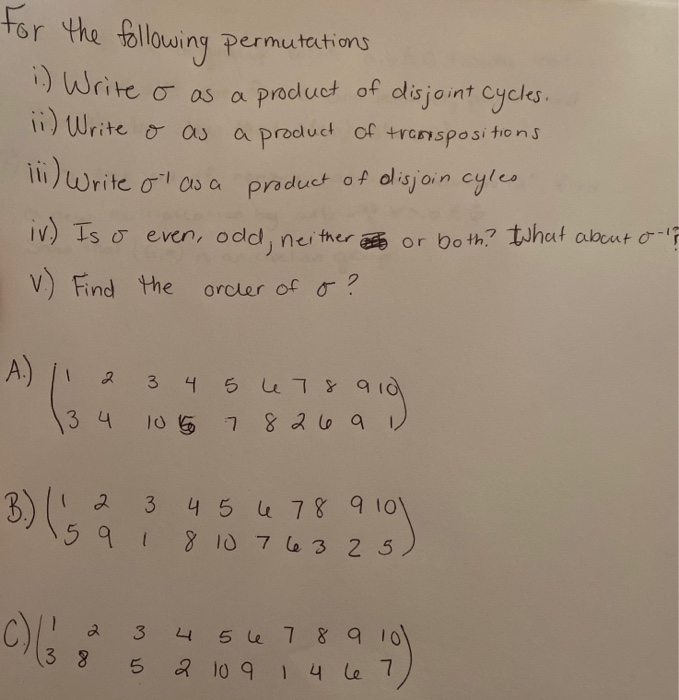 For the following permutations
i.) Write σ as a product of disjoint cycles.
ii) Write σ as a product of transpositions
iii) Write σ⁻¹ as a product of disjoin cyles
iv.) Is σ even, odd, neither or both? What about σ⁻¹?
v.) Find the order of σ?
A.) (1 2 3 4 5 6 7 8 9 10)
(3 4 10 5 7 8 2 6 9 1)
B.) (1 2 3 4 5 6 7 8 9 10)
(5 9 1 8 10 7 6 3 2 5)
C.) (1 2 3 4 5 6 7 8 9 10)
(3 8 5 2 10 9 1 4 6 7)